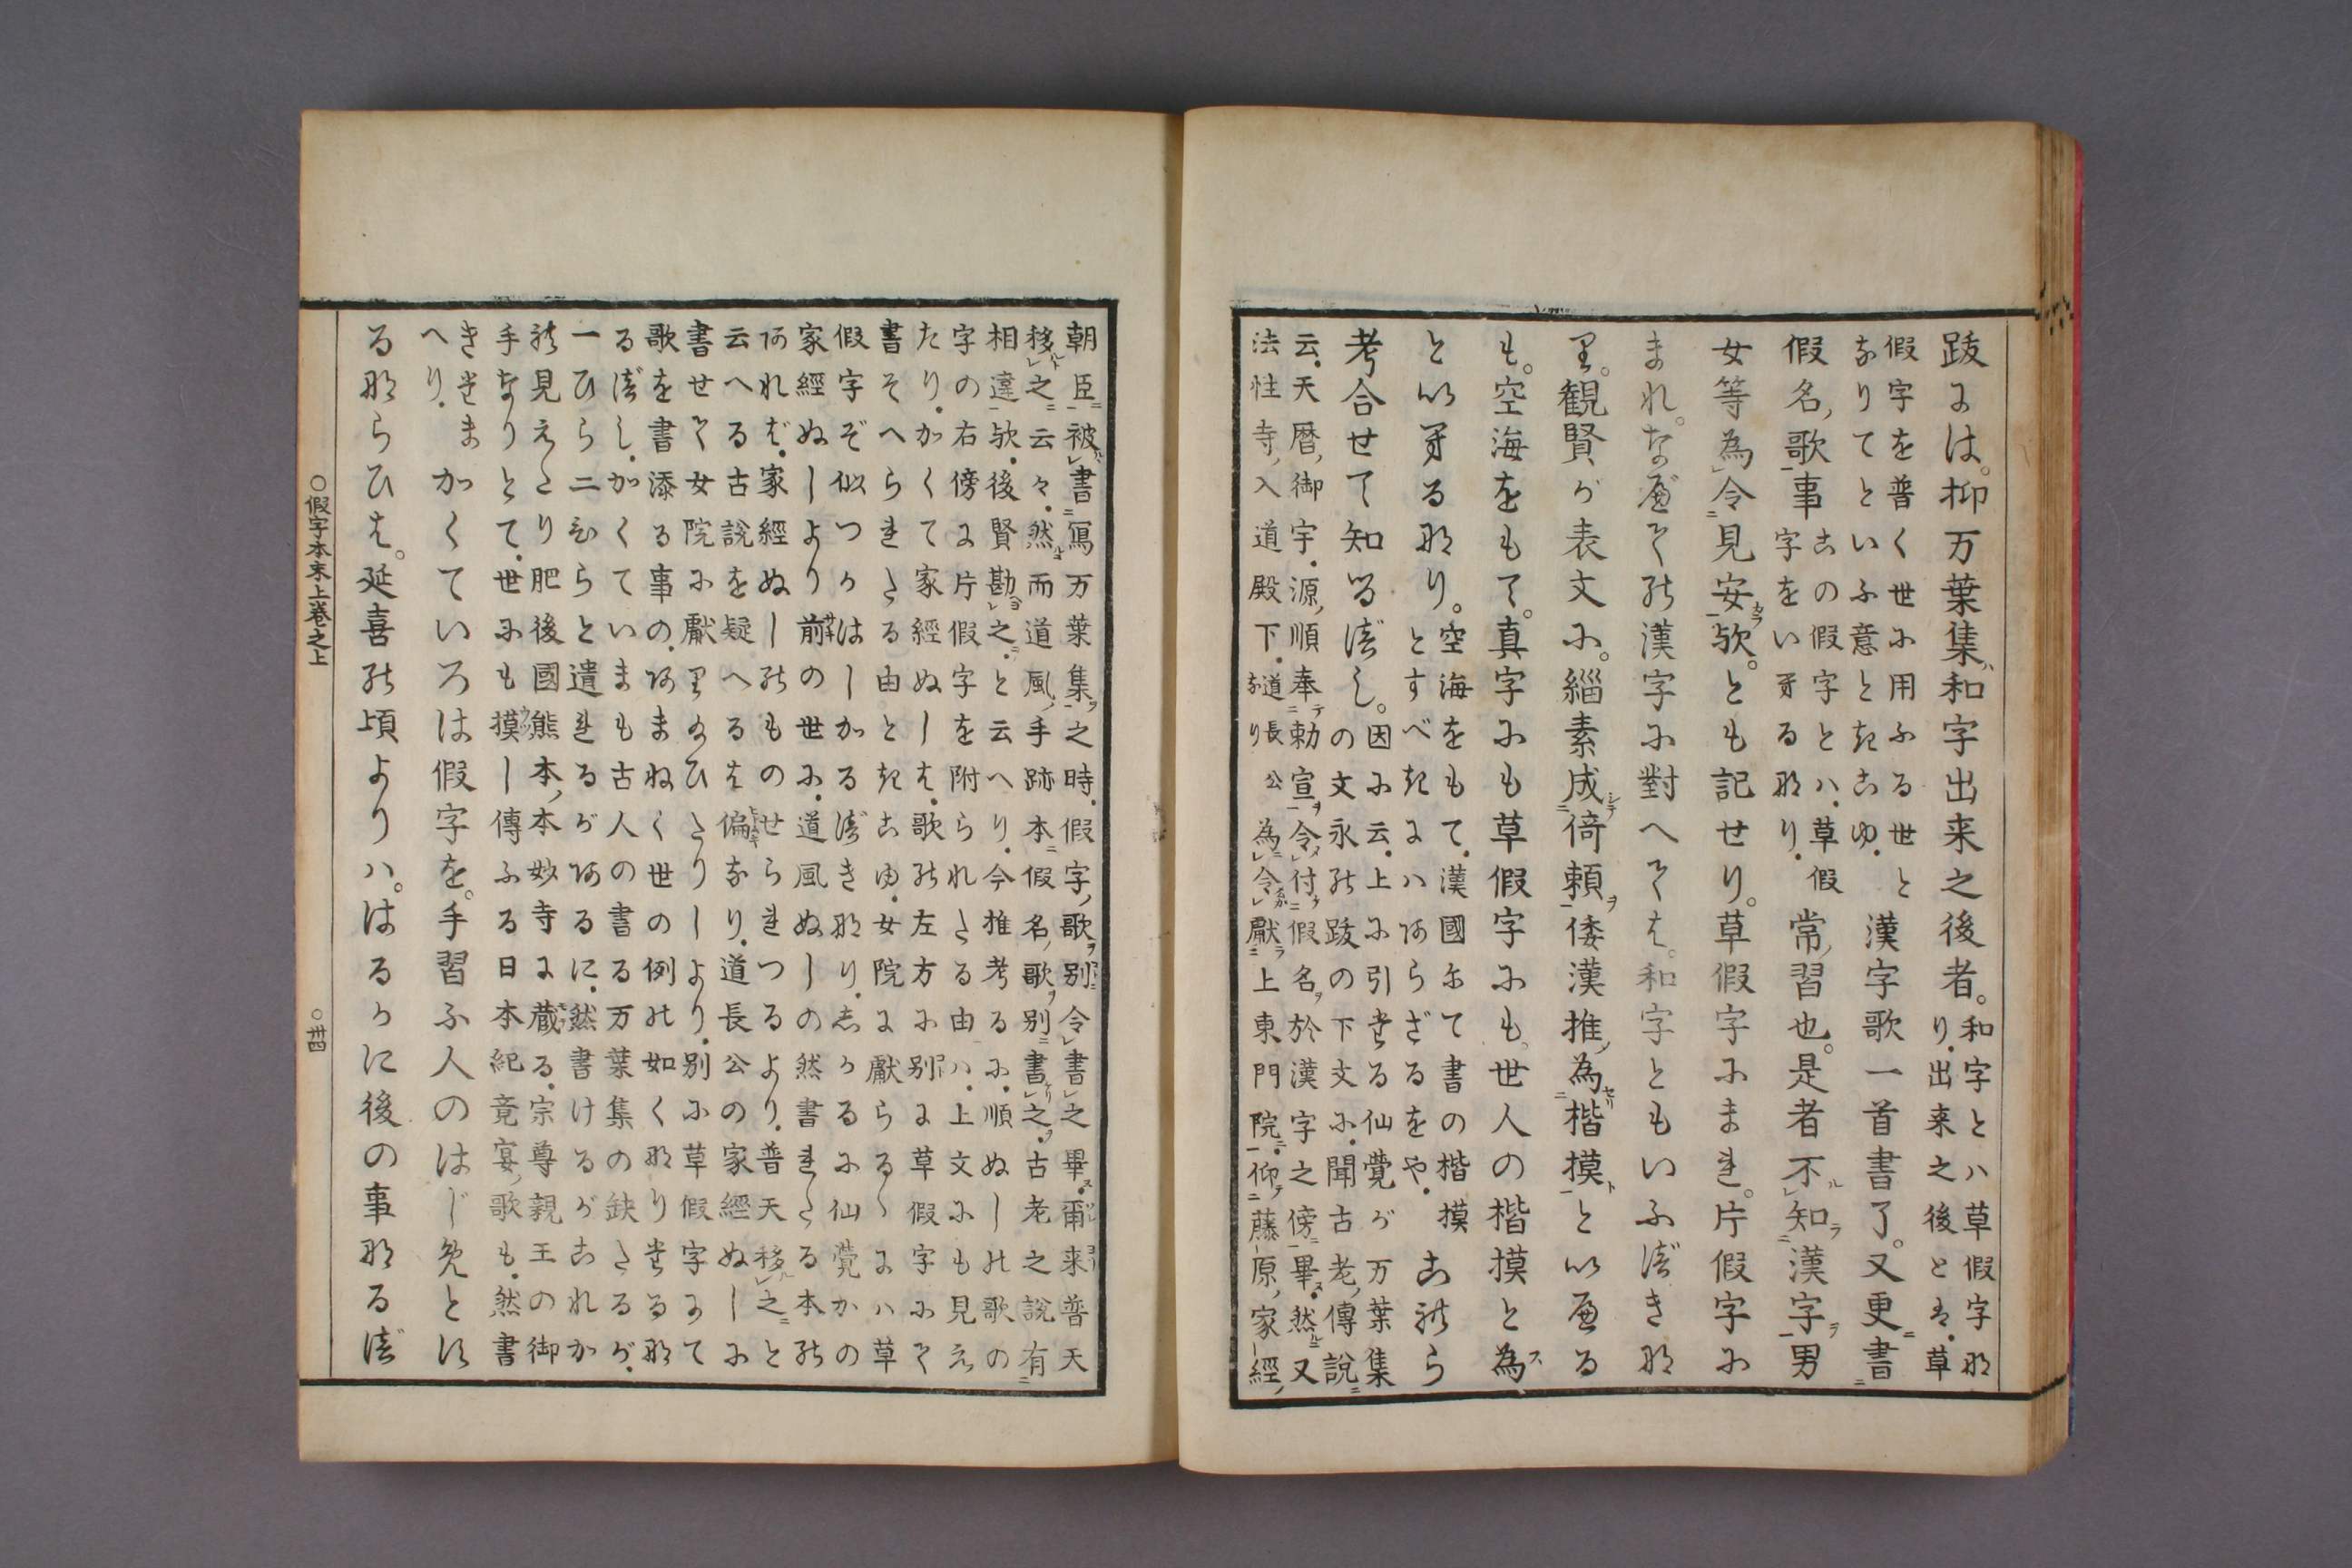 跋には。抑万葉集和字出来之後者。和字とハ草假字な
り。出来之後とは。草
假字を普く世に用ふる世と
なりてといふ意ときこゆ。漢字歌一首書了。又更書
假名歌事この假字とハ。草假
字をいへるなり。常習也。是者不知漢字男
女等為令見安欤。とも記せり。草假字にまれ。片假字に
まれ。なべての漢字に對へては。和字ともいふべきな
り。観賢が表文に。緇素成倚頼倭漢推為楷摸といへる
も。空海をもて。真字にも草假字にも。世人の楷摸と為
といへるなり。空海をもて。漢國にて書の楷摸
とすべきにハあらざるをや。こゝら
考合せて知るべし。因に云。上に引たる仙覺が万葉集
の文永の跋の下文に。聞古老傳說
云。天暦御宇。源順奉勅宣令付假名於漢字之傍畢。然又
法性寺入道殿下。道長公
なり為令獻上東門院。仰藤原家經
朝臣被書寫万葉集之時。假字歌別令書之畢。爾来普天
移之云々。然而道風手跡本假名歌別書之。古老之說有
相違欤。後賢勘之。と云へり。今推考るに。順ぬしの歌の
字の右傍に片假字を附られたる由ハ。上文にも見え
たり。かくて家經ぬしは。歌の左方に別に草假字にて
書そへられたる由ときこゆ。女院に獻らるゝにハ草
假字ぞ似つかはしかるべきなり。志かるに仙覺かの
家經ぬしより前の世に。道風ぬしの然書れたる本の
あれば。家經ぬしのものせられつるより。普天移之と
云へる古說を疑へるは偏なり。道長公の家經ぬしに
書せて女院に獻り給ひたりしより。別に草假字にて
歌を書添る事の。あまねく世の例の如くなりたるな
るべし。かくていまも古人の書る万葉集の缺たるが。
一ひら二ひらと遺れるがあるに。然書けるがこれか
れ見えたり肥後國熊本本妙寺に蔵る。宗尊親王の御
手なりとて。世にも摸し傳ふる日本紀竟宴歌も。然書
きたま
へり。かくていろは假字を。手習ふ人のはじめとす
るならひは。延喜の頃よりハ。はるかに後の事なるべ
○假字本末上巻之上
○卅四